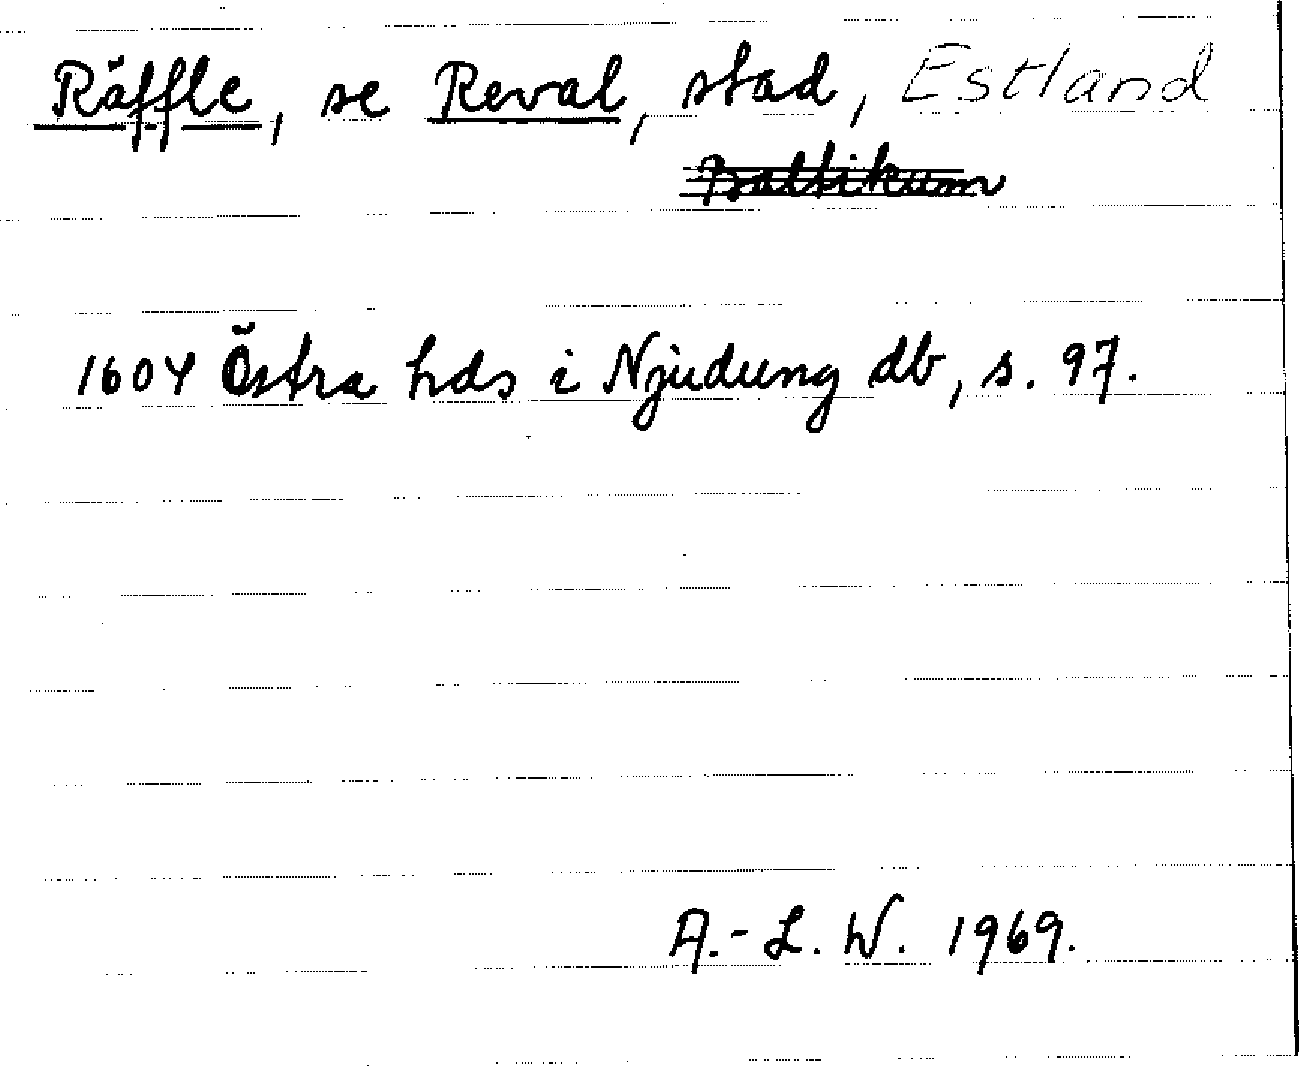 Räffle, se Reval, stad, Estland
Baltikum
1604 Östra hds i Njudung db, s. 97.
A.-L. W. 1969.